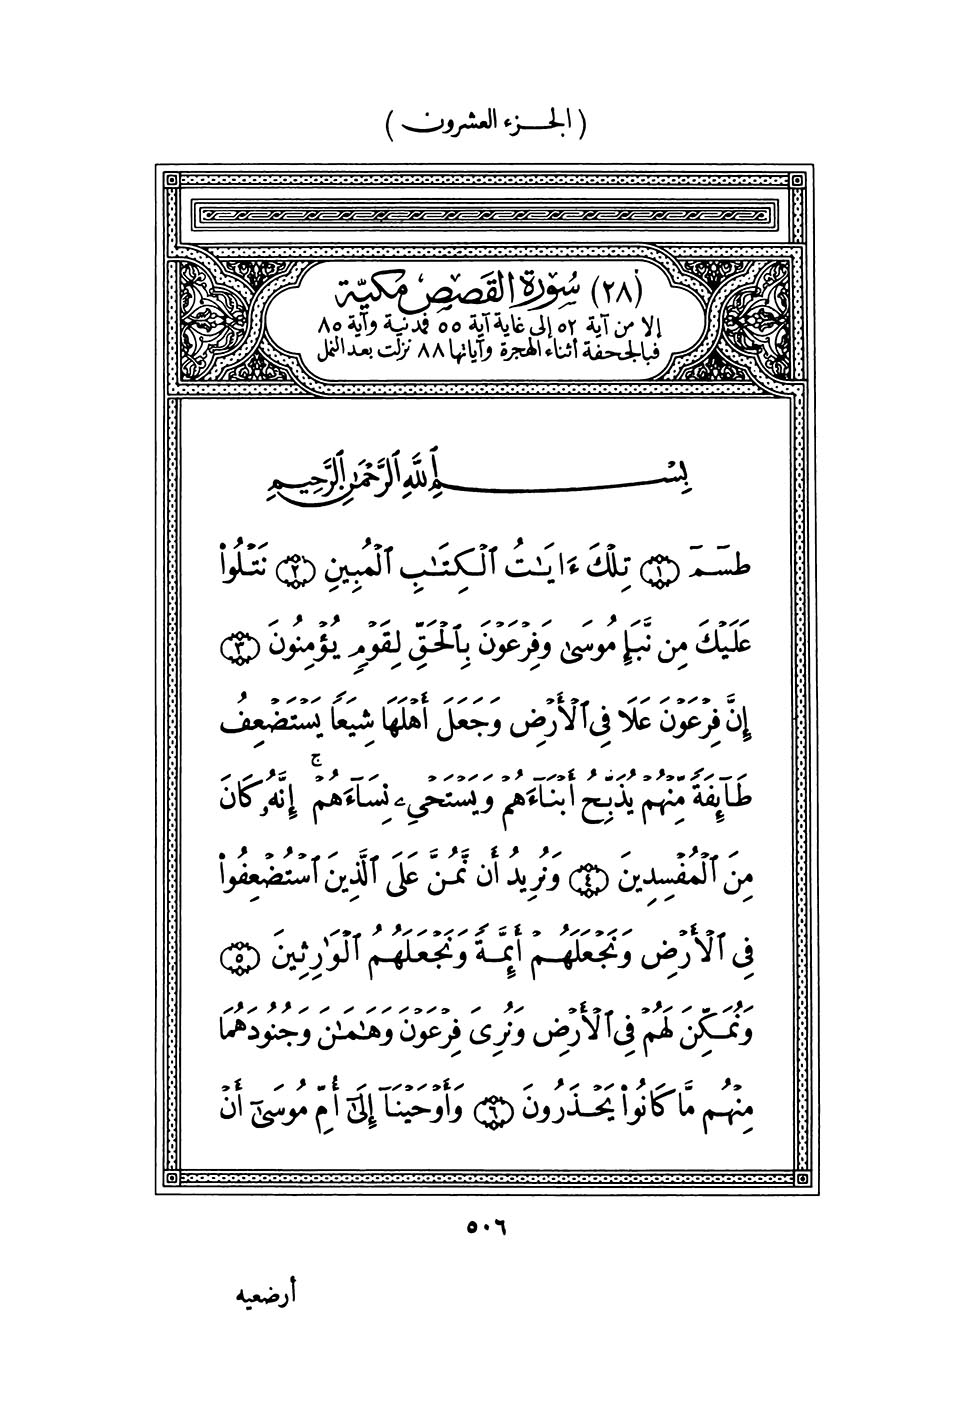 ( الجزء العشرون )
(٢٨) سُورَة القَصَصِ مَكيّة
إلا من آية ٥٢ إلى غاية آية ٥٥ فمدنية وآية ٨٥
فبالجحفة أثناء الهجرة وآياتها ٨٨ نزلت بعد النمل
بِسْمِ ٱللَّهِ ٱلرَّحْمَٰنِ ٱلرَّحِيمِ
طسٓمٓ ۝١ تِلْكَ ءَايَٰتُ ٱلْكِتَٰبِ ٱلْمُبِينِ ۝٢ نَتْلُوا۟
عَلَيْكَ مِن نَّبَإِ مُوسَىٰ وَفِرْعَوْنَ بِٱلْحَقِّ لِقَوْمٍ يُؤْمِنُونَ ۝٣
إِنَّ فِرْعَوْنَ عَلَا فِى ٱلْأَرْضِ وَجَعَلَ أَهْلَهَا شِيَعًا يَسْتَضْعِفُ
طَآئِفَةً مِّنْهُمْ يُذَبِّحُ أَبْنَآءَهُمْ وَيَسْتَحْىِۦ نِسَآءَهُمْ ۚ إِنَّهُۥ كَانَ
مِنَ ٱلْمُفْسِدِينَ ۝٤ وَنُرِيدُ أَن نَّمُنَّ عَلَى ٱلَّذِينَ ٱسْتُضْعِفُوا۟
فِى ٱلْأَرْضِ وَنَجْعَلَهُمْ أَئِمَّةً وَنَجْعَلَهُمُ ٱلْوَٰرِثِينَ ۝٥
وَنُمَكِّنَ لَهُمْ فِى ٱلْأَرْضِ وَنُرِىَ فِرْعَوْنَ وَهَٰمَٰنَ وَجُنُودَهُمَا
مِنْهُم مَّا كَانُوا۟ يَحْذَرُونَ ۝٦ وَأَوْحَيْنَآ إِلَىٰٓ أُمِّ مُوسَىٰٓ أَنْ
٥٠٦
أرضعيه